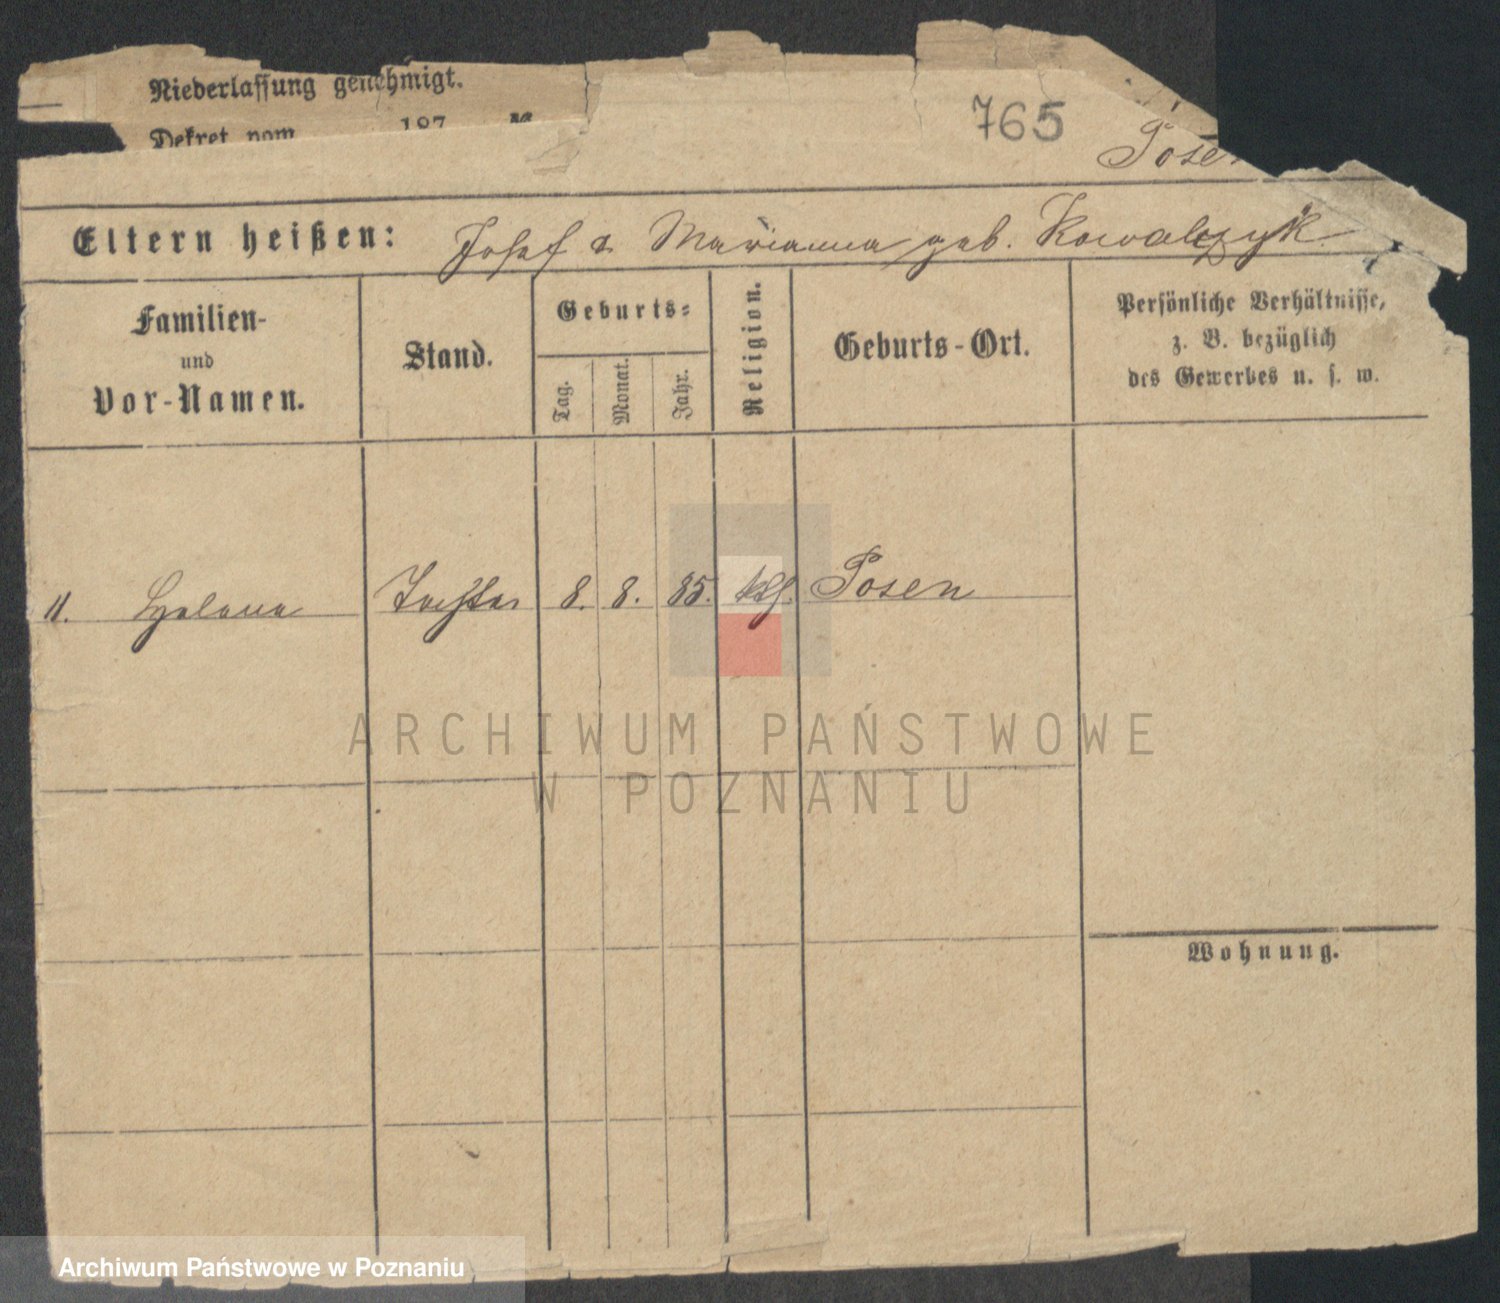 Niederlassung genehmigt.
Dekret vom 187
765
Posen
Eltern heißen: Josef & Marianna geb. Kowalczyk
Familien-
und
Vor-Namen.
Stand.
Geburts-
Tag.
Monat.
Jahr.
Religion.
Geburts-Ort.
Persönliche Verhältnisse,
z. B. bezüglich
des Gewerbes u. s. w.
11. Helena Tochter 8. 8. 85. kth. Posen
ARCHIWUM PAŃSTWOWE
W POZNANIU
Wohnung.
Archiwum Państwowe w Poznaniu